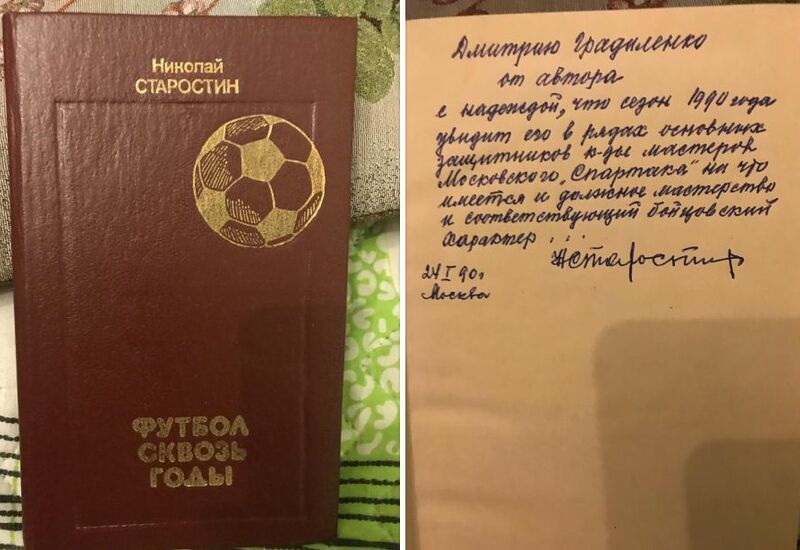 Николай
СТАРОСТИН
ФУТБОЛ
СКВОЗЬ
ГОДЫ
Дмитрию Градиленко
от автора
с надеждой, что сезон 1990 года
увидит его в рядах основных
защитников к-ды мастеров
Московского „Спартака" на что
имеется и должное мастерство
и соответствующий бойцовский
характер...
НСтаростин
24 I 90 г
Москва